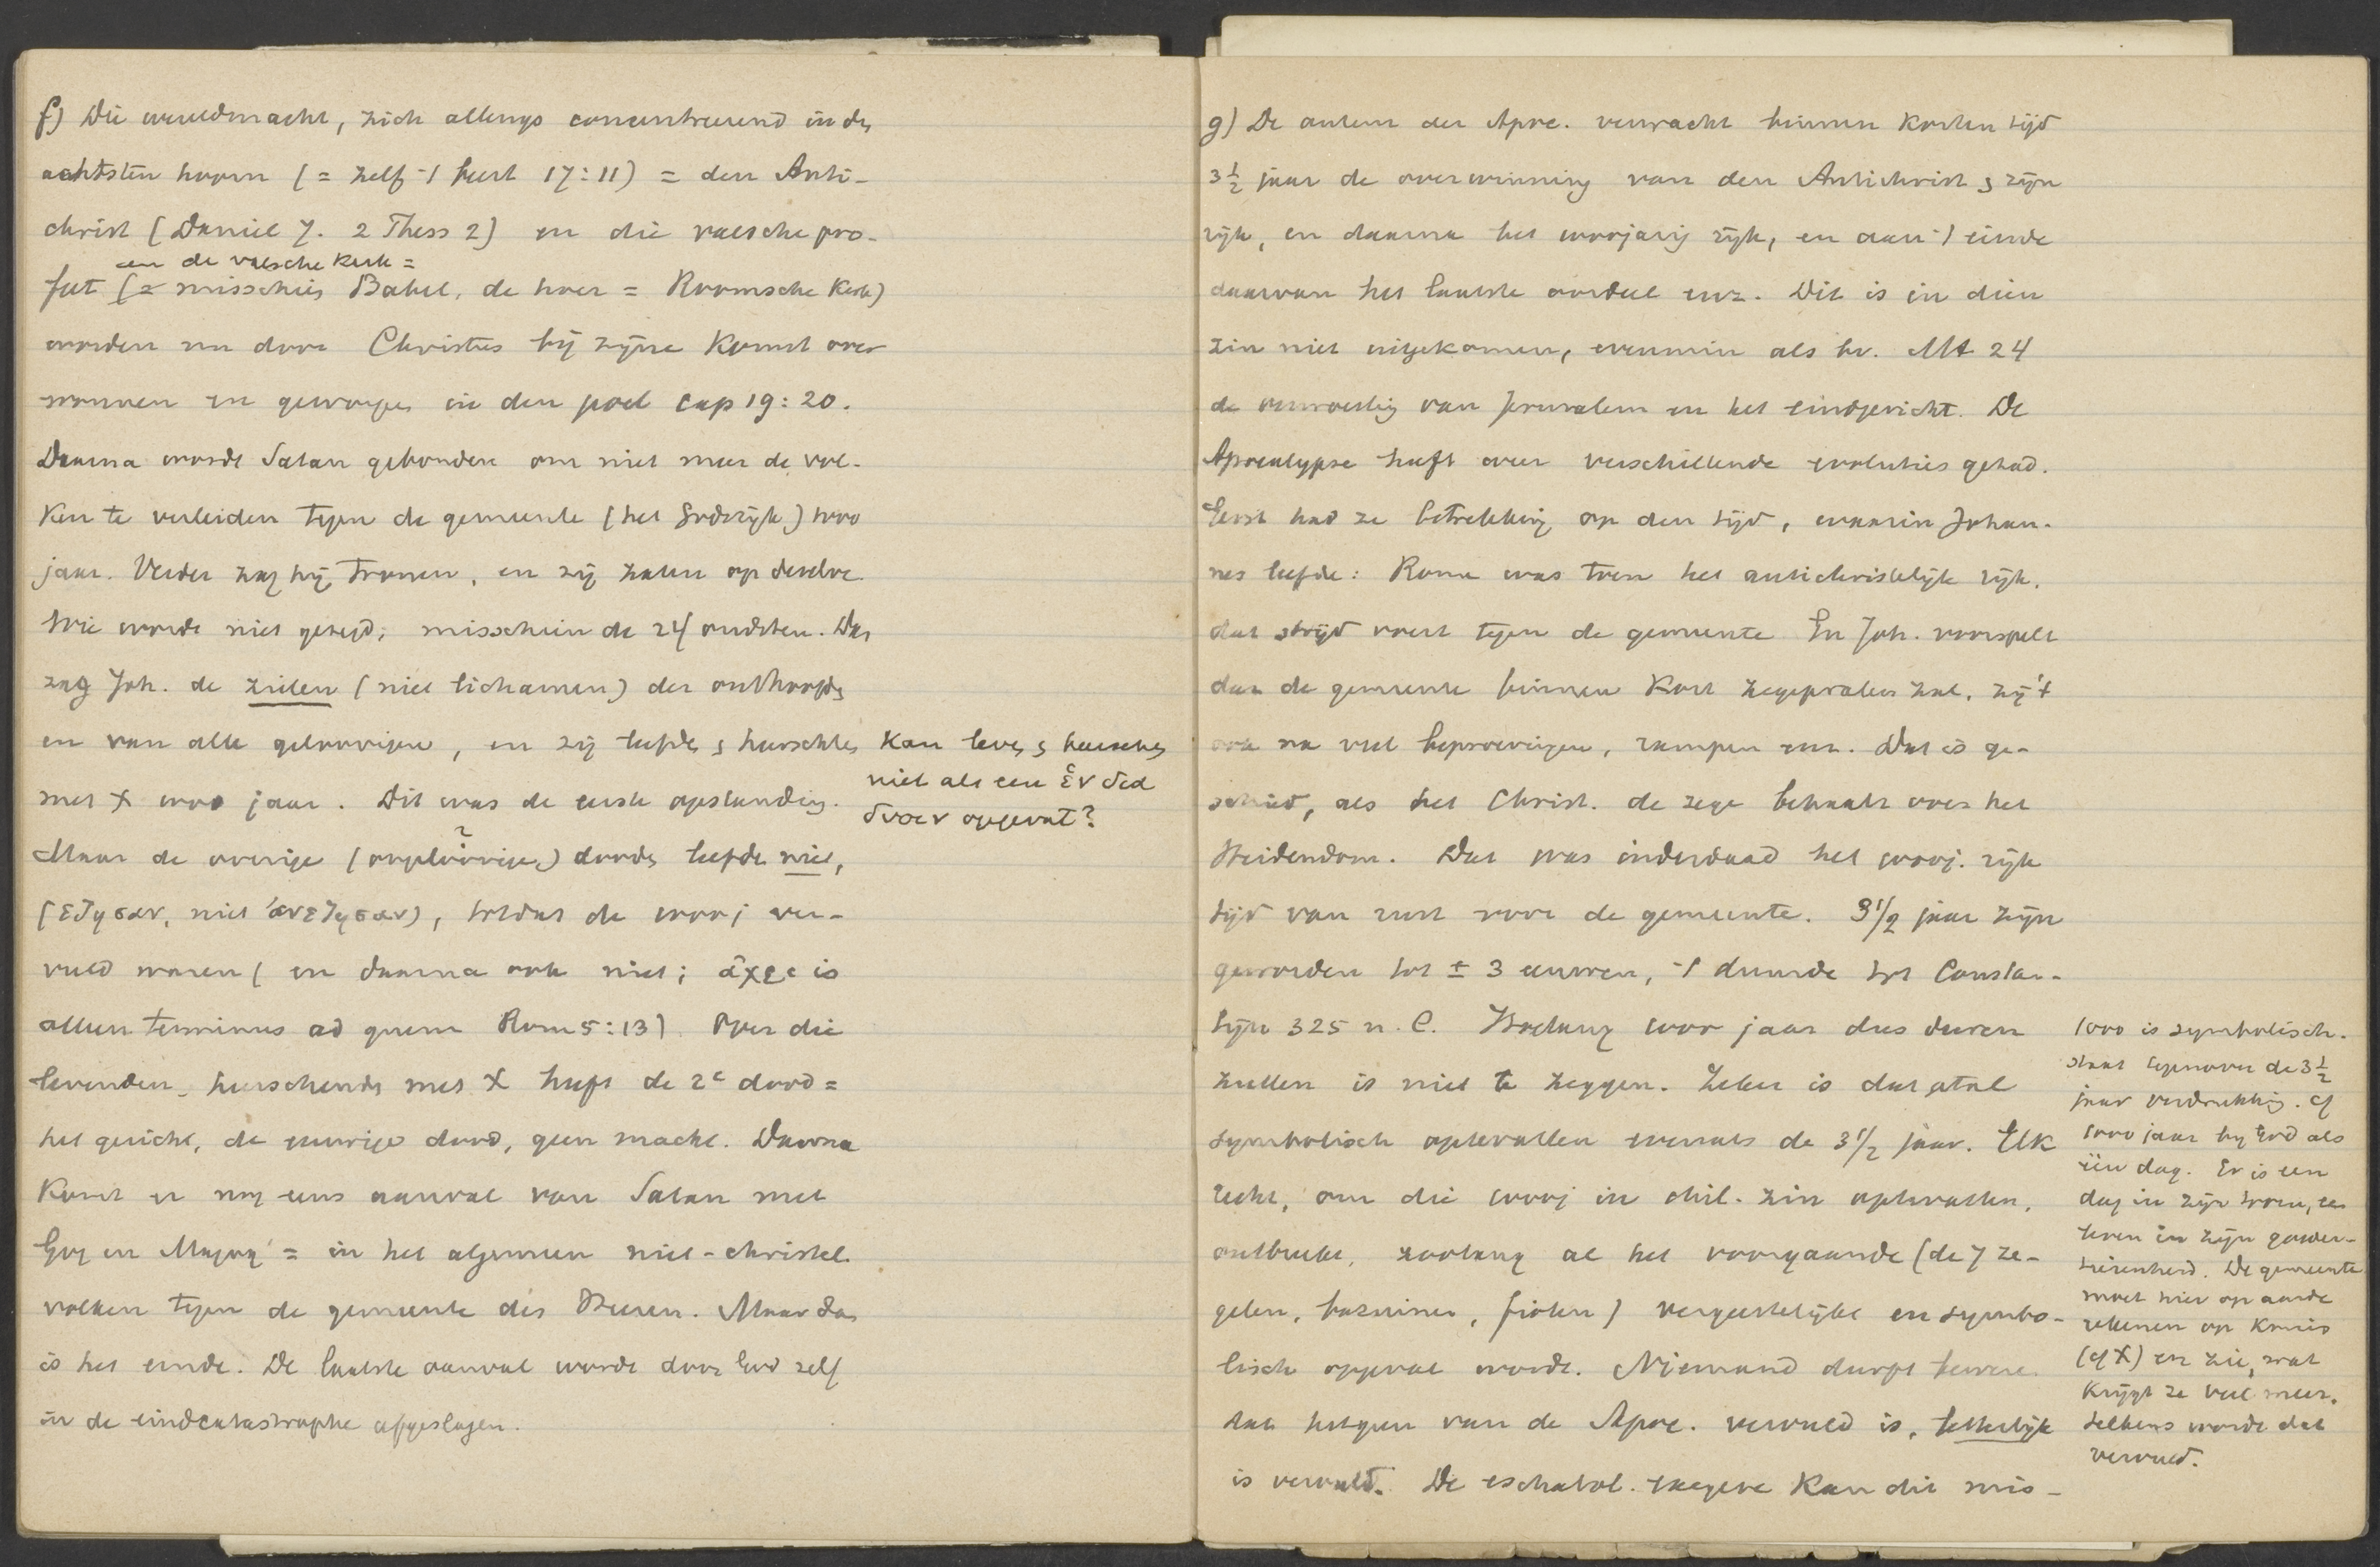 f) Die wereldmacht, zich allengs concentreerend in den
achtsten hoorn (= zelf 't beest 17:11) = den Anti-
christ (Daniel 7. 2 Thess 2) en die valsche pro-
en de valsche kerk =
feet (= misschien Babel, de hoer = Roomsche Kerk)
worden nu door Christus bij zijne komst over
wonnen en geworpen in den poel cap 19:20.
Daarna wordt Satan gebonden om niet meer de vol-
ken te verleiden tegen de gemeente (het Godsrijk) 1000
jaar. Verder zag hij tronen, en zij zaten op dezelve.
Wie wordt niet gezegd; misschien de 24 oudsten. Dan
zag Joh. de zielen (niet lichamen) der onthoofden
en van alle geloovigen, en zij leefden & heerschten
met X 1000 jaar. Dit was de eerste opstanding.
Kan leven & heerschen
niet als een ἓν διὰ
δυοῖν opgevat?
?
Maar de overige (ongeloovige) dooden leefden niet,
(εζησαν, niet ἀνεζησαν), totdat de 1000 j ver-
vuld waren (en daarna ook niet; ἄχρι is
alleen terminus ad quem Rom 5:13). Over die
levenden, heerschende met X heeft de 2e dood =
het gericht, de eeuwige dood, geen macht. Daarna
komt er nog eens aanval van Satan met
Gog en Magog = in het algemeen niet-christel.
volken tegen de gemeente des Heeren. Maar dan
is het einde. De laatste aanval wordt door God zelf
in de eindcatastrophe afgeslagen.
g) De auteur der Apoc. verwacht binnen korten tijd
3 1/2 jaar de overwinning van den Antichrist & zijn
rijk, en daarna het 1000jarig rijk, en aan 't einde
daarvan het laatste oordeel enz. Dit is in dien
zin niet uitgekomen, evenmin als bv. Mt 24
de verwoesting van Jeruzalem en het eindgericht. De
Apocalypse heeft over verschillende evoluties gehad.
Eerst had ze betrekking op den tijd, waarin Johan-
nes leefde: Rome was toen het antichristelijk rijk,
dat strijd voert tegen de gemeente En Joh. voorspelt
dan de gemeente binnen kort zegepralen zal, zij 't
ook na veel beproevingen, rampen enz. Dat is ge-
schied, als het Christ. de zege behaalt over het
Heidendom. Dat was inderdaad het 1000j. rijk
tijd van rust voor de gemeente. 3 1/2 jaar zijn
geworden tot ± 3 eeuwen, 't duurde tot Constan-
tijn 325 n. C. Hoelang 1000 jaar dus duren
zullen is niet te zeggen. Zeker is dat getal
symbolisch optevatten evenals de 3 1/2 jaar. Elk
recht, om die 1000j in chil. zin optevatten,
ontbreekt, zoolang al het voorgaande (de 7 ze-
gelen, bazuinen, fiolen) vergeestelijkt en symbo-
lisch opgevat wordt. Niemand durft beweren
dat hetgeen van de Apoc. vervuld is, letterlijk
is vervuld. De eschatol. exegese kan dit mis-
1000 is symbolisch.
staat tegenover de 3 1/2
jaar verdrukking. cf
1000 jaar bij God als
één dag. Er is een
dag in zijn toorn, een
leven in zijn goeder-
tierenheid. De gemeente
moet hier op aarde
rekenen op kruis
(cf X) en zie, wat
krijgt ze veel meer.
telkens wordt dat
vervuld.